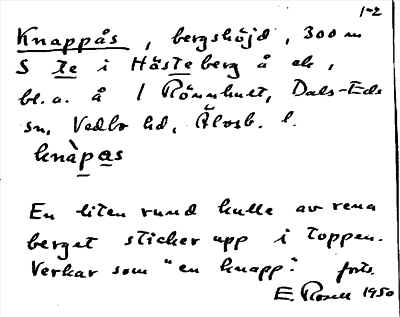 1-2
Knappås, bergshöjd, 300 m
S Te i Hästeberg å ek,
bl.a. å 1 Rönnhult, Dals-Eds
sn, Vedbo hd, Älvsb. l.
knàpas
En liten rund kulle av rena
berget sticker upp i toppen.
Verkar som "en knapp". forts.
E. Rosell 1950